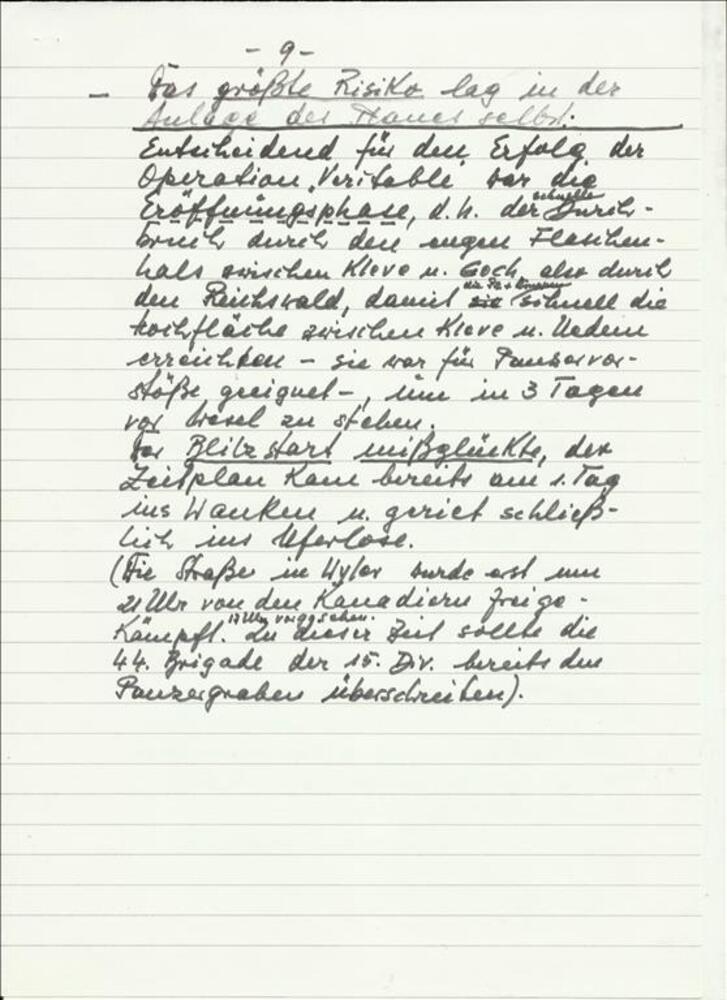 - 9 -
- Das größte Risiko lag in der
Anlage des Planes selbst:
Entscheidend für den Erfolg der
Operation „Veritable" war die
Eröffnungsphase, d.h. der schnelle Durch-
bruch durch den engen Flaschen-
hals zwischen Kleve u. Goch, also durch
den Reichswald, damit die Pz + schnell die
Hochfläche zwischen Kleve u. Uedem
erreichten - sie war für Panzervor-
stöße geeignet -, um in 3 Tagen
vor Wesel zu stehen.
Der Blitzstart mißglückte, der
Zeitplan kam bereits am 1. Tag
ins Wanken u. geriet schließ-
lich ins Uferlose.
(Die Straße in Wyler wurde erst um
21 Uhr von den Kanadiern freige-
kämpft. 17 Uhr vorgesehen. Zu dieser Zeit sollte die
44. Brigade der 15. Div. bereits den
Panzergraben überschreiten).